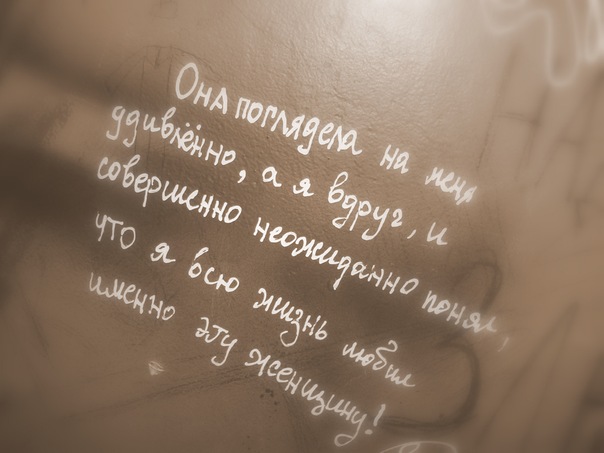 Она поглядела на меня
удивлённо, а я вдруг, и
совершенно неожиданно понял,
что я всю жизнь любил
именно эту женщину!